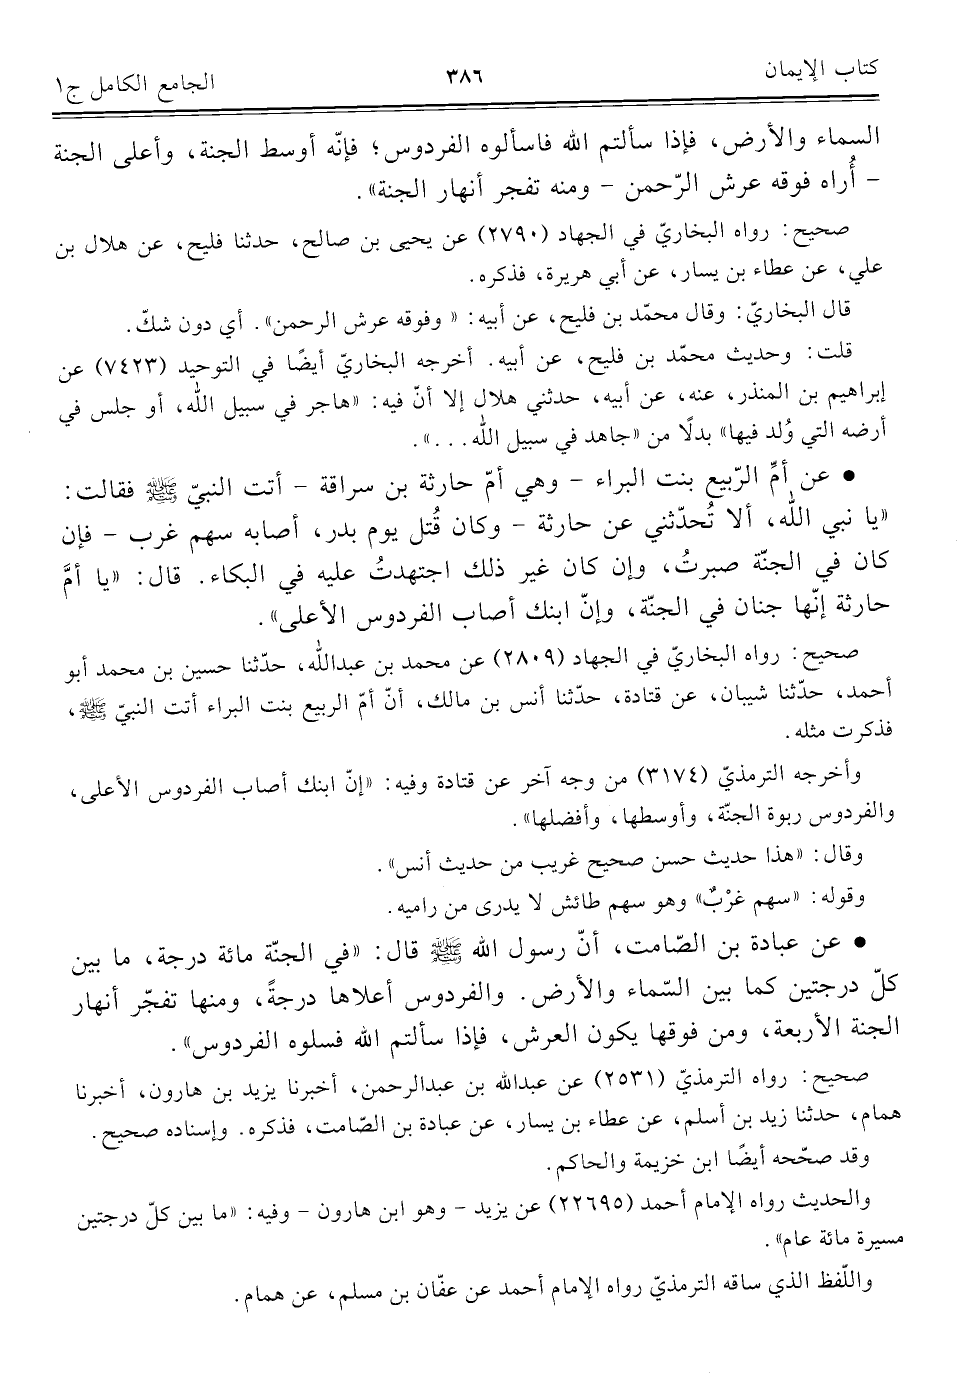 كتاب الإيمان ٣٨٦ الجامع الكامل ج١
السماء والأرض، فإذا سألتم الله فاسألوه الفردوس؛ فإنّه أوسط الجنة، وأعلى الجنة
- أُراه فوقه عرش الرّحمن - ومنه تفجر أنهار الجنة».
صحيح: رواه البخاريّ في الجهاد (٢٧٩٠) عن يحيى بن صالح، حدثنا فليح، عن هلال بن
علي، عن عطاء بن يسار، عن أبي هريرة، فذكره.
قال البخاريّ: وقال محمّد بن فليح، عن أبيه: « وفوقه عرش الرحمن». أي دون شكّ.
قلت: وحديث محمّد بن فليح، عن أبيه. أخرجه البخاريّ أيضًا في التوحيد (٧٤٢٣) عن
إبراهيم بن المنذر، عنه، عن أبيه، حدثني هلال إلا أنّ فيه: «هاجر في سبيل الله، أو جلس في
أرضه التي وُلد فيها» بدلًا من «جاهد في سبيل الله...».
• عن أمِّ الرّبيع بنت البراء - وهي أمّ حارثة بن سراقة - أتت النبيّ ﷺ فقالت:
«يا نبي الله، ألا تُحدّثني عن حارثة - وكان قُتل يوم بدر، أصابه سهم غرب - فإن
كان في الجنّة صبرتُ، وإن كان غير ذلك اجتهدتُ عليه في البكاء. قال: «يا أمَّ
حارثة إنّها جنان في الجنّة، وإنّ ابنك أصاب الفردوس الأعلى».
صحيح: رواه البخاريّ في الجهاد (٢٨٠٩) عن محمد بن عبدالله، حدّثنا حسين بن محمد أبو
أحمد، حدّثنا شيبان، عن قتادة، حدّثنا أنس بن مالك، أنّ أمّ الربيع بنت البراء أتت النبيّ ﷺ،
فذكرت مثله.
وأخرجه الترمذيّ (٣١٧٤) من وجه آخر عن قتادة وفيه: «إنّ ابنك أصاب الفردوس الأعلى،
والفردوس ربوة الجنّة، وأوسطها، وأفضلها».
وقال: «هذا حديث حسن صحيح غريب من حديث أنس».
وقوله: «سهم غرْبٌ» وهو سهم طائش لا يدرى من راميه.
• عن عبادة بن الصّامت، أنّ رسول الله ﷺ قال: «في الجنّة مائة درجة، ما بين
كلّ درجتين كما بين السّماء والأرض. والفردوس أعلاها درجةً، ومنها تفجّر أنهار
الجنة الأربعة، ومن فوقها يكون العرش، فإذا سألتم الله فسلوه الفردوس».
صحيح: رواه الترمذيّ (٢٥٣١) عن عبدالله بن عبدالرحمن، أخبرنا يزيد بن هارون، أخبرنا
همام، حدثنا زيد بن أسلم، عن عطاء بن يسار، عن عبادة بن الصّامت، فذكره. وإسناده صحيح.
وقد صحّحه أيضًا ابن خزيمة والحاكم.
والحديث رواه الإمام أحمد (٢٢٦٩٥) عن يزيد - وهو ابن هارون - وفيه: «ما بين كلّ درجتين
مسيرة مائة عام».
واللّفظ الذي ساقه الترمذيّ رواه الإمام أحمد عن عفّان بن مسلم، عن همام.